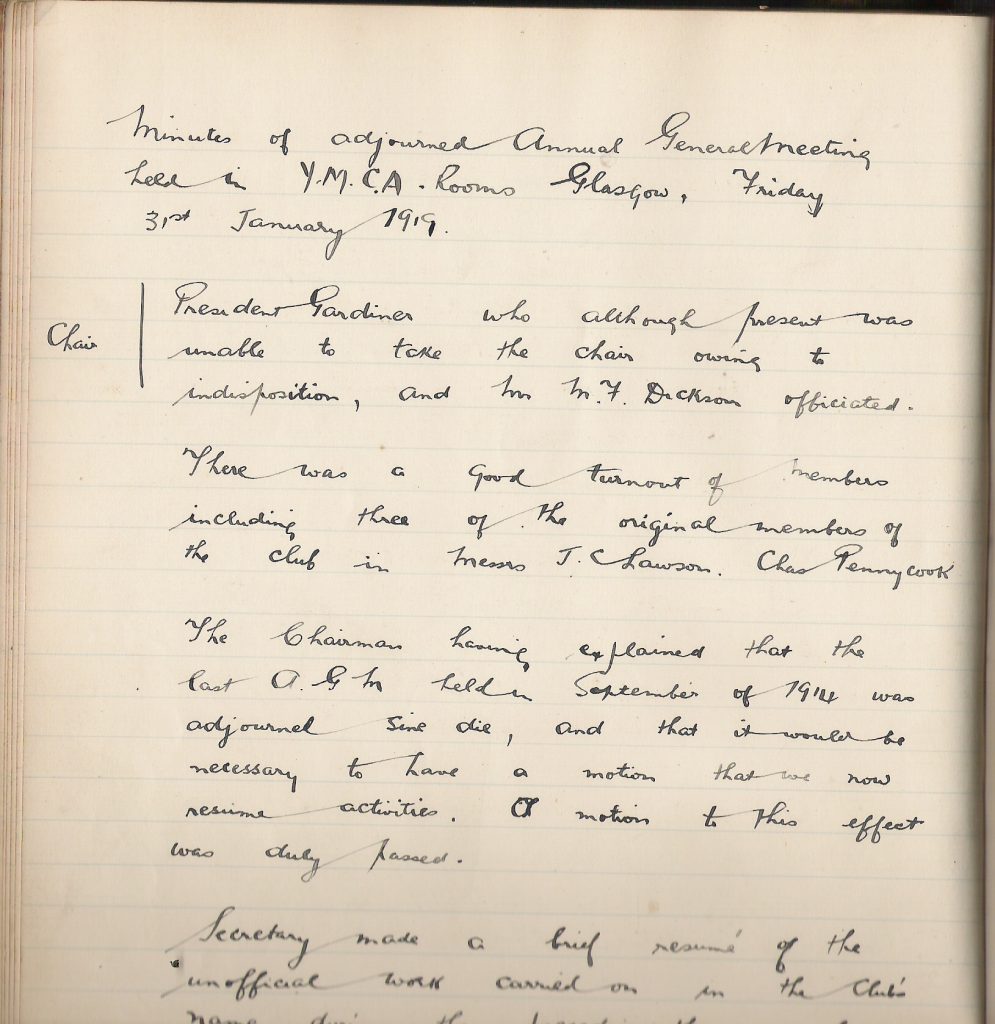 Minutes of adjourned Annual General Meeting
held in Y.M.C.A. Rooms Glasgow, Friday
31st January 1919.
Chair
President Gardiner who although present was
unable to take the chair owing to
indisposition, and Mr M.F. Dickson officiated.
There was a good turnout of members
including three of the original members of
the club in Messrs J. C Lawson. Chas Pennycook
The Chairman having explained that the
last A.G.M held in September of 1914 was
adjourned sine die, and that it would be
necessary to have a motion that we now
resume activities. A motion to this effect
was duly passed.
Secretary made a brief resumé of the
unofficial work carried on in the Club's
name the